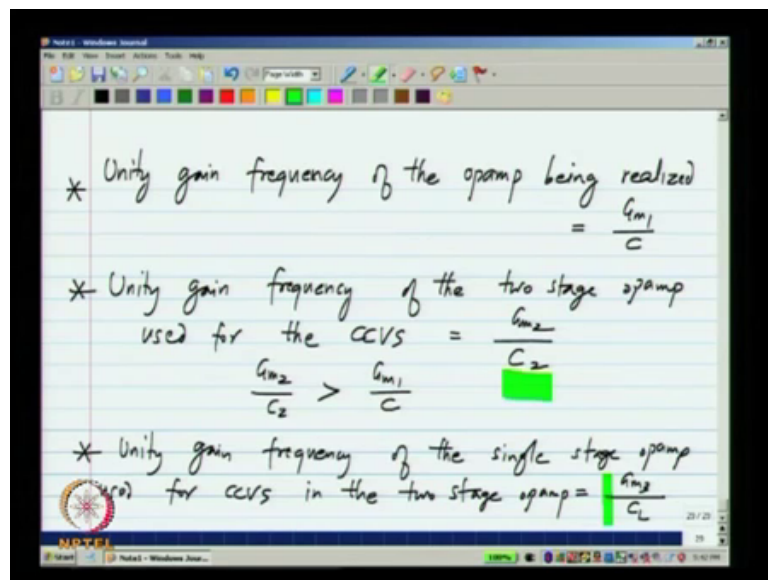 Note1 - Windows Journal
File Edit View Insert Actions Tools Help
Page Width
* Unity gain frequency of the opamp being realized
= Gm1
C
* Unity gain frequency of the two stage opamp
used for the CCVS = Gm2
C2
Gm2 > Gm1
C2 C
* Unity gain frequency of the single stage opamp
used for CCVS in the two stage opamp = Gm3
CL
NPTEL
29/29
29
Start
Note1 - Windows Jour...
100%
5:42 PM